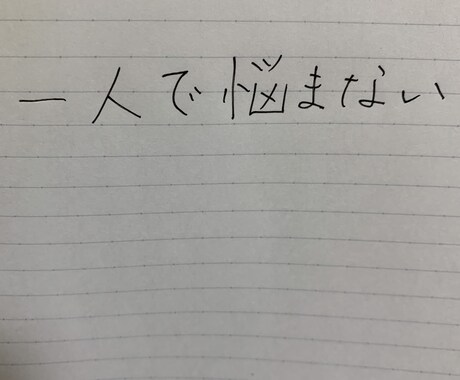 一人で悩まない